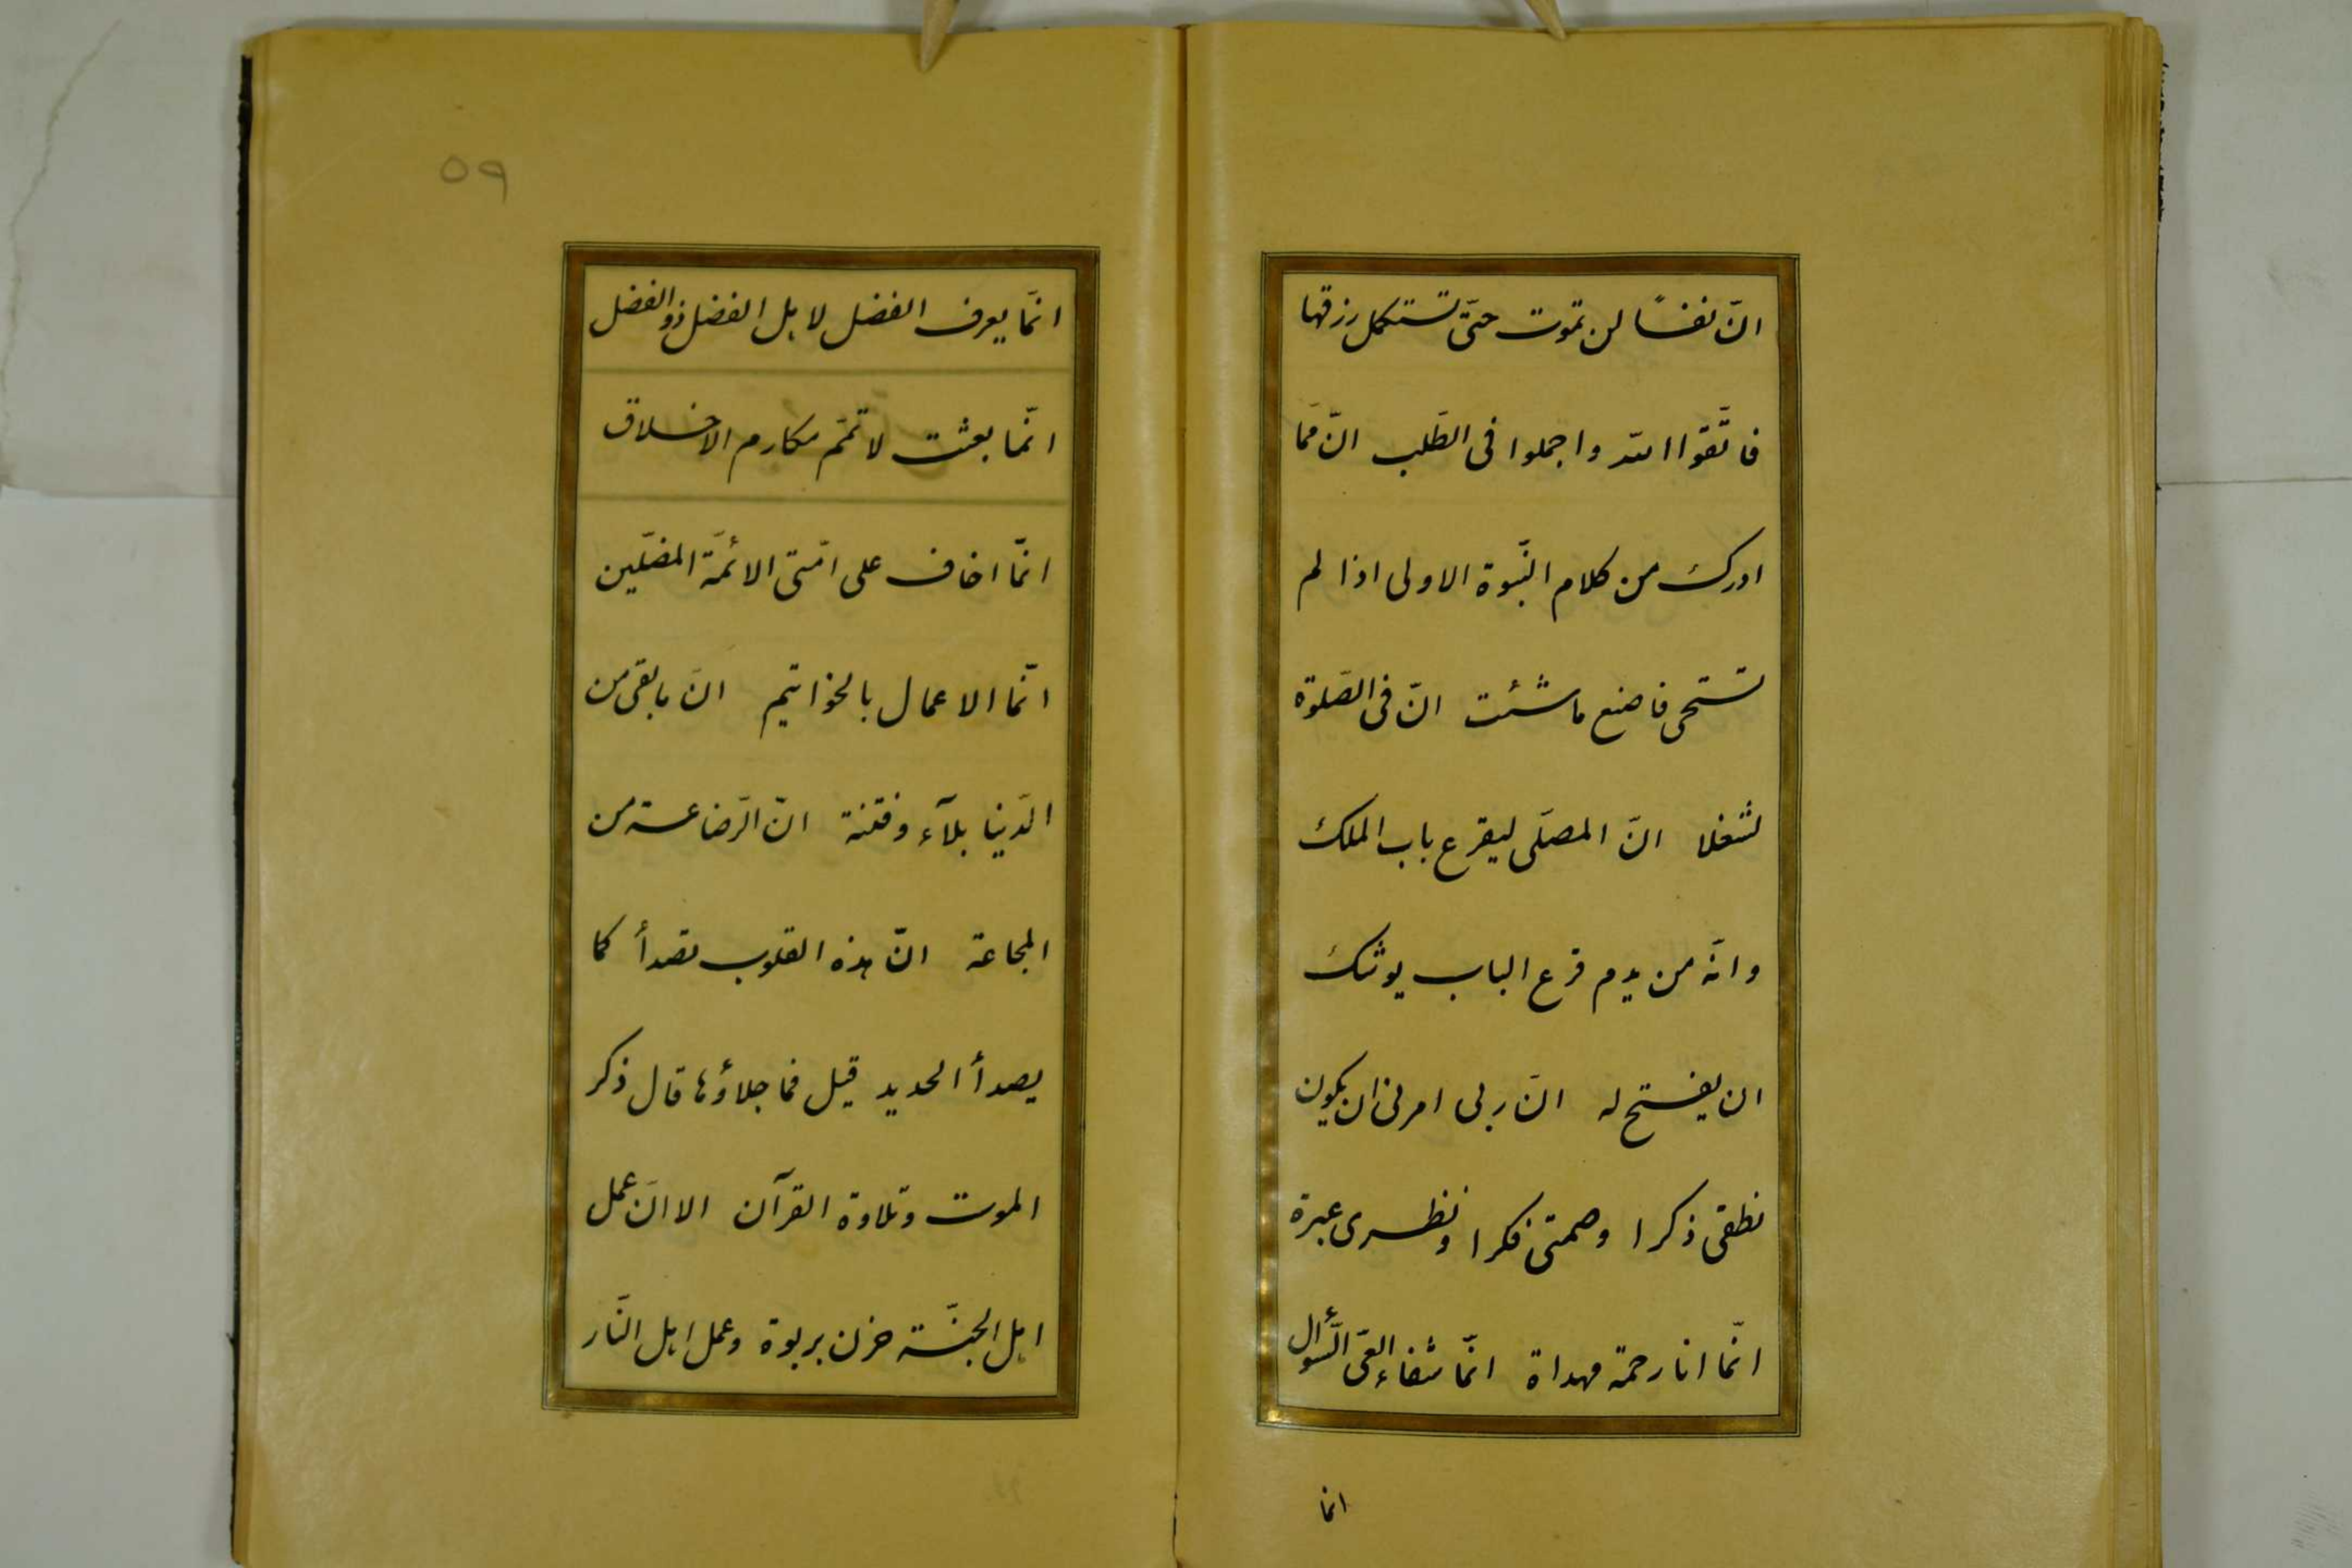 انّ نفساً لن تموت حتّى تستكمل رزقها
فاتّقوا الله واجملوا فى الطّلب انّ ممّا
ادرك من كلام النّبوة الاولى اذا لم
تستحى فاصنع ما شئت انّ فى الصّلوة
لشغلا انّ المصلّى ليقرع باب الملك
وانّه من يدم قرع الباب يوشك
ان يفتح له انّ ربى امرنى ان يكون
نطقى ذكرا وصمتى فكرا ونظرى عبرة
انّما انا رحمة مهداة انّما شفاء العىّ السّؤال
انما
٥٩
انّما يعرف الفضل لاهل الفضل ذوالفضل
انّما بعثت لاتمّم مكارم الاخلاق
انّما اخاف على امّتى الائمّة المضلّين
انّما الاعمال بالخواتيم انّ ما بقى من
الدّنيا بلآء وفتنة انّ الرّضاعة من
المجاعة انّ هذه القلوب تصدأ كما
يصدأ الحديد قيل فما جلاؤها قال ذكر
الموت وتلاوة القرآن الا انّ عمل
اهل الجنّة حزن بربوة وعمل اهل النّار